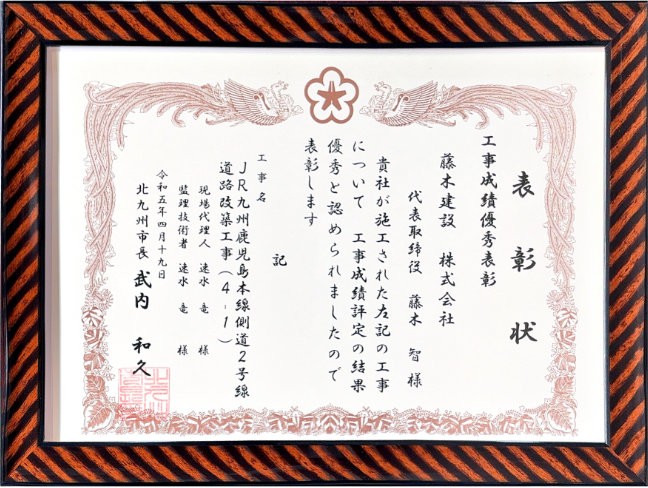 表彰状
工事成績優秀表彰
藤木建設 株式会社
代表取締役 藤木 智 様
貴社が施工された左記の工事
について 工事成績評定の結果
優秀と認められましたので
表彰します
記
工事名
JR九州鹿児島本線側道2号線
道路改築工事(4-1)
現場代理人 速水 竜 様
監理技術者 速水 竜 様
令和五年四月十九日
北九州市長 武内 和久